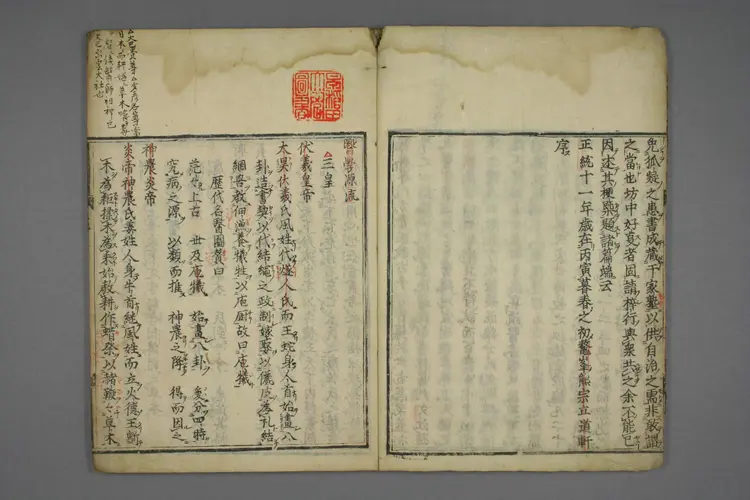 免狐疑之患書成藏于家塾以供自治之需非敢謂
之當也坊中好事者固請梓行與衆共之余不能已
因述其梗槩題諸篇端云
正統十一年歲在丙寅暮春之初鰲峯熊宗立道軒
序
醫學源流
三皇
伏羲皇帝
太昊伏羲氏風姓代燧人氏而王蛇身人首始畫八
卦造書契以代結繩之政制嫁娶以儷皮為礼結
網罟教佃漁養犧牲以庖厨故曰庖犧
歷代名醫圖贊曰
茫茫上古 世及庖犧 始畫八卦 爰分四時
究病之源 以類而推 神農之降 得而因之
神農炎帝
炎帝神農氏姜姓人身牛首継風姓而立火德王斲
木為耜揉木為耒始教耕作蜡祭以赭鞭草木